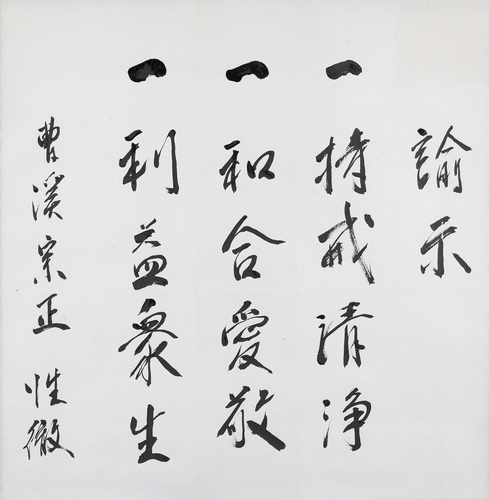 諭示
一 持戒清浄
一 和合愛敬
一 利益衆生
曹溪宗正 性徹